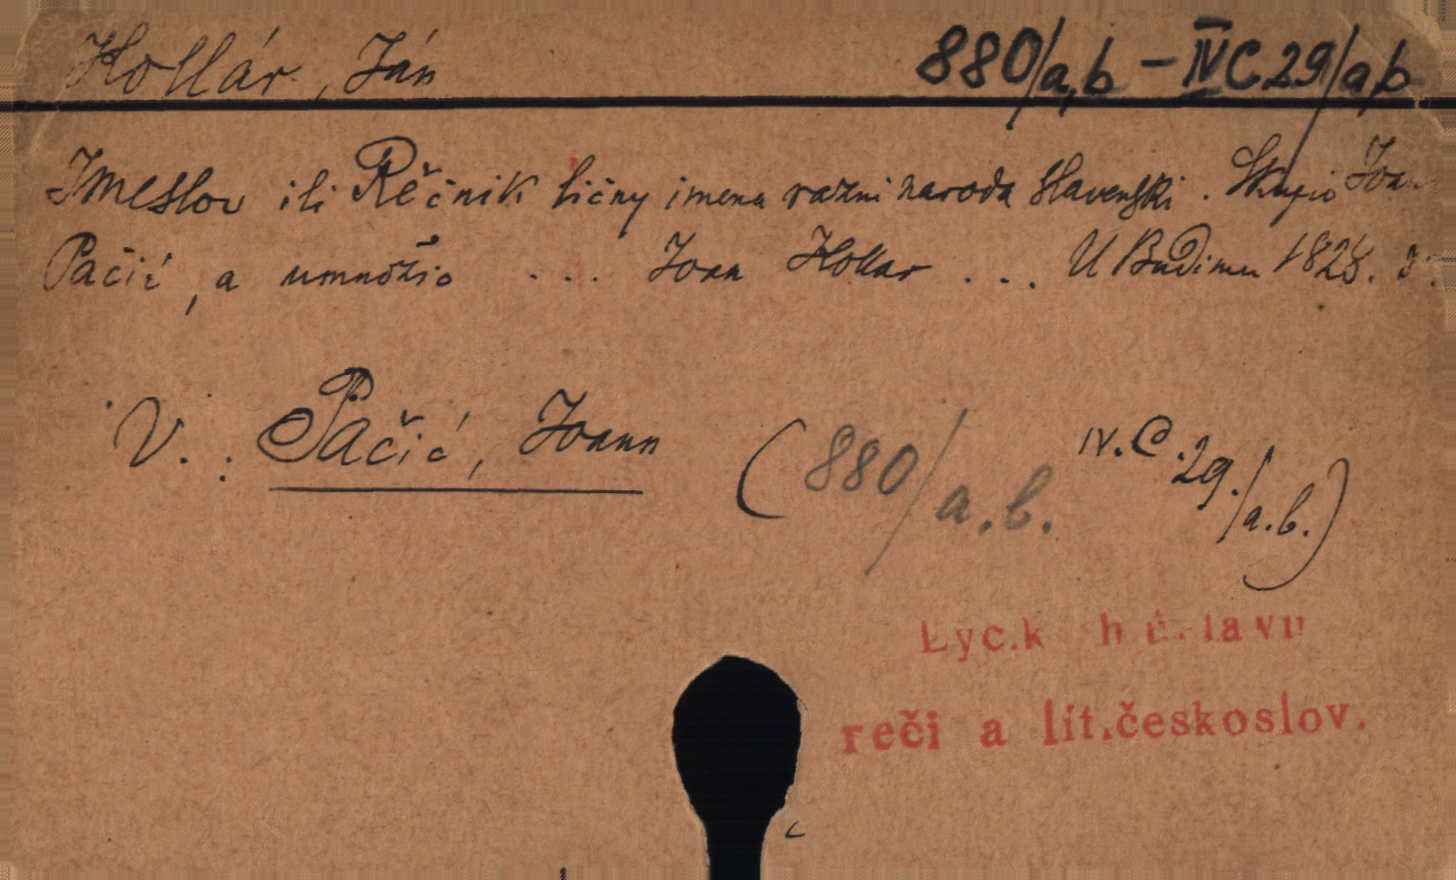 Kollár, Ján 880/a,b - IV C 29/a,b
Imeslov ili Rěčnik ličny imena razni naroda slavenski. Skupio Joan
Pačić, a umnožio .... Joan Kollar ... U Budimu 1828. 
V.: Pačić, Joann (880/a.b. IV.C.29./a.b.)
Lyc.k
reči a lit.českoslov.